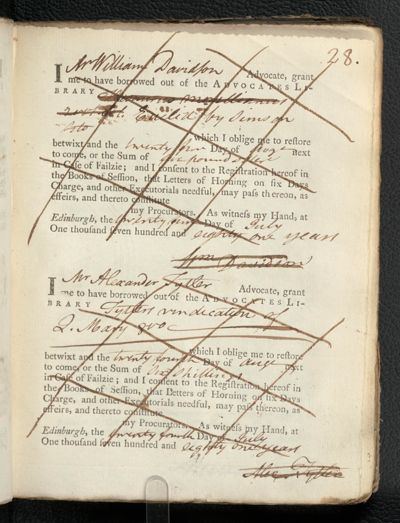 28.
I Mr William Davidson Advocate, grant
me to have borrowed out of the ADVOCATES LI-
BRARY
Euclid by Simson
4to
, which I oblige me to restore
betwixt and the twenty Day of next
to come, or the Sum of
in Case of Failzie; and I consent to the Registration hereof in
the Books of Session, that Letters of Horning on six Days
Charge, and other Executorials needful, may pass thereon, as
effeirs, and thereto constitute
my Procurators. As witness my Hand, at
Edinburgh, the twenty Day of July
One thousand seven hundred and eighty one years
Wm Davidson
I Mr Alexander Tytler Advocate, grant
me to have borrowed out of the ADVOCATES LI-
BRARY Tytlers vindication of
Q. Mary 8vo
, which I oblige me to restore
betwixt and the twenty fourth Day of next
to come, or the Sum of Shillings
in Case of Failzie; and I consent to the Registration hereof in
the Books of Session, that Letters of Horning on six Days
Charge, and other Executorials needful, may pass thereon, as
effeirs, and thereto constitute
my Procurators. As witness my Hand, at
Edinburgh, the twenty fourth Day of July
One thousand seven hundred and eighty one years
Alexr Tytler